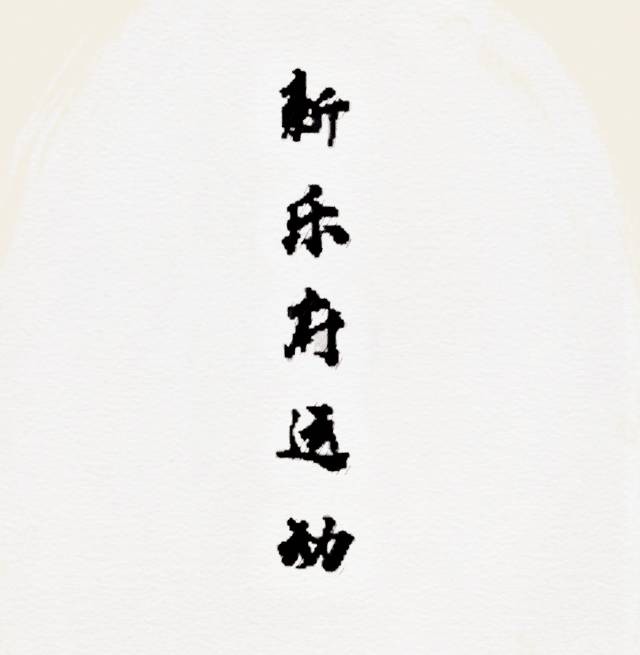 新乐府运动